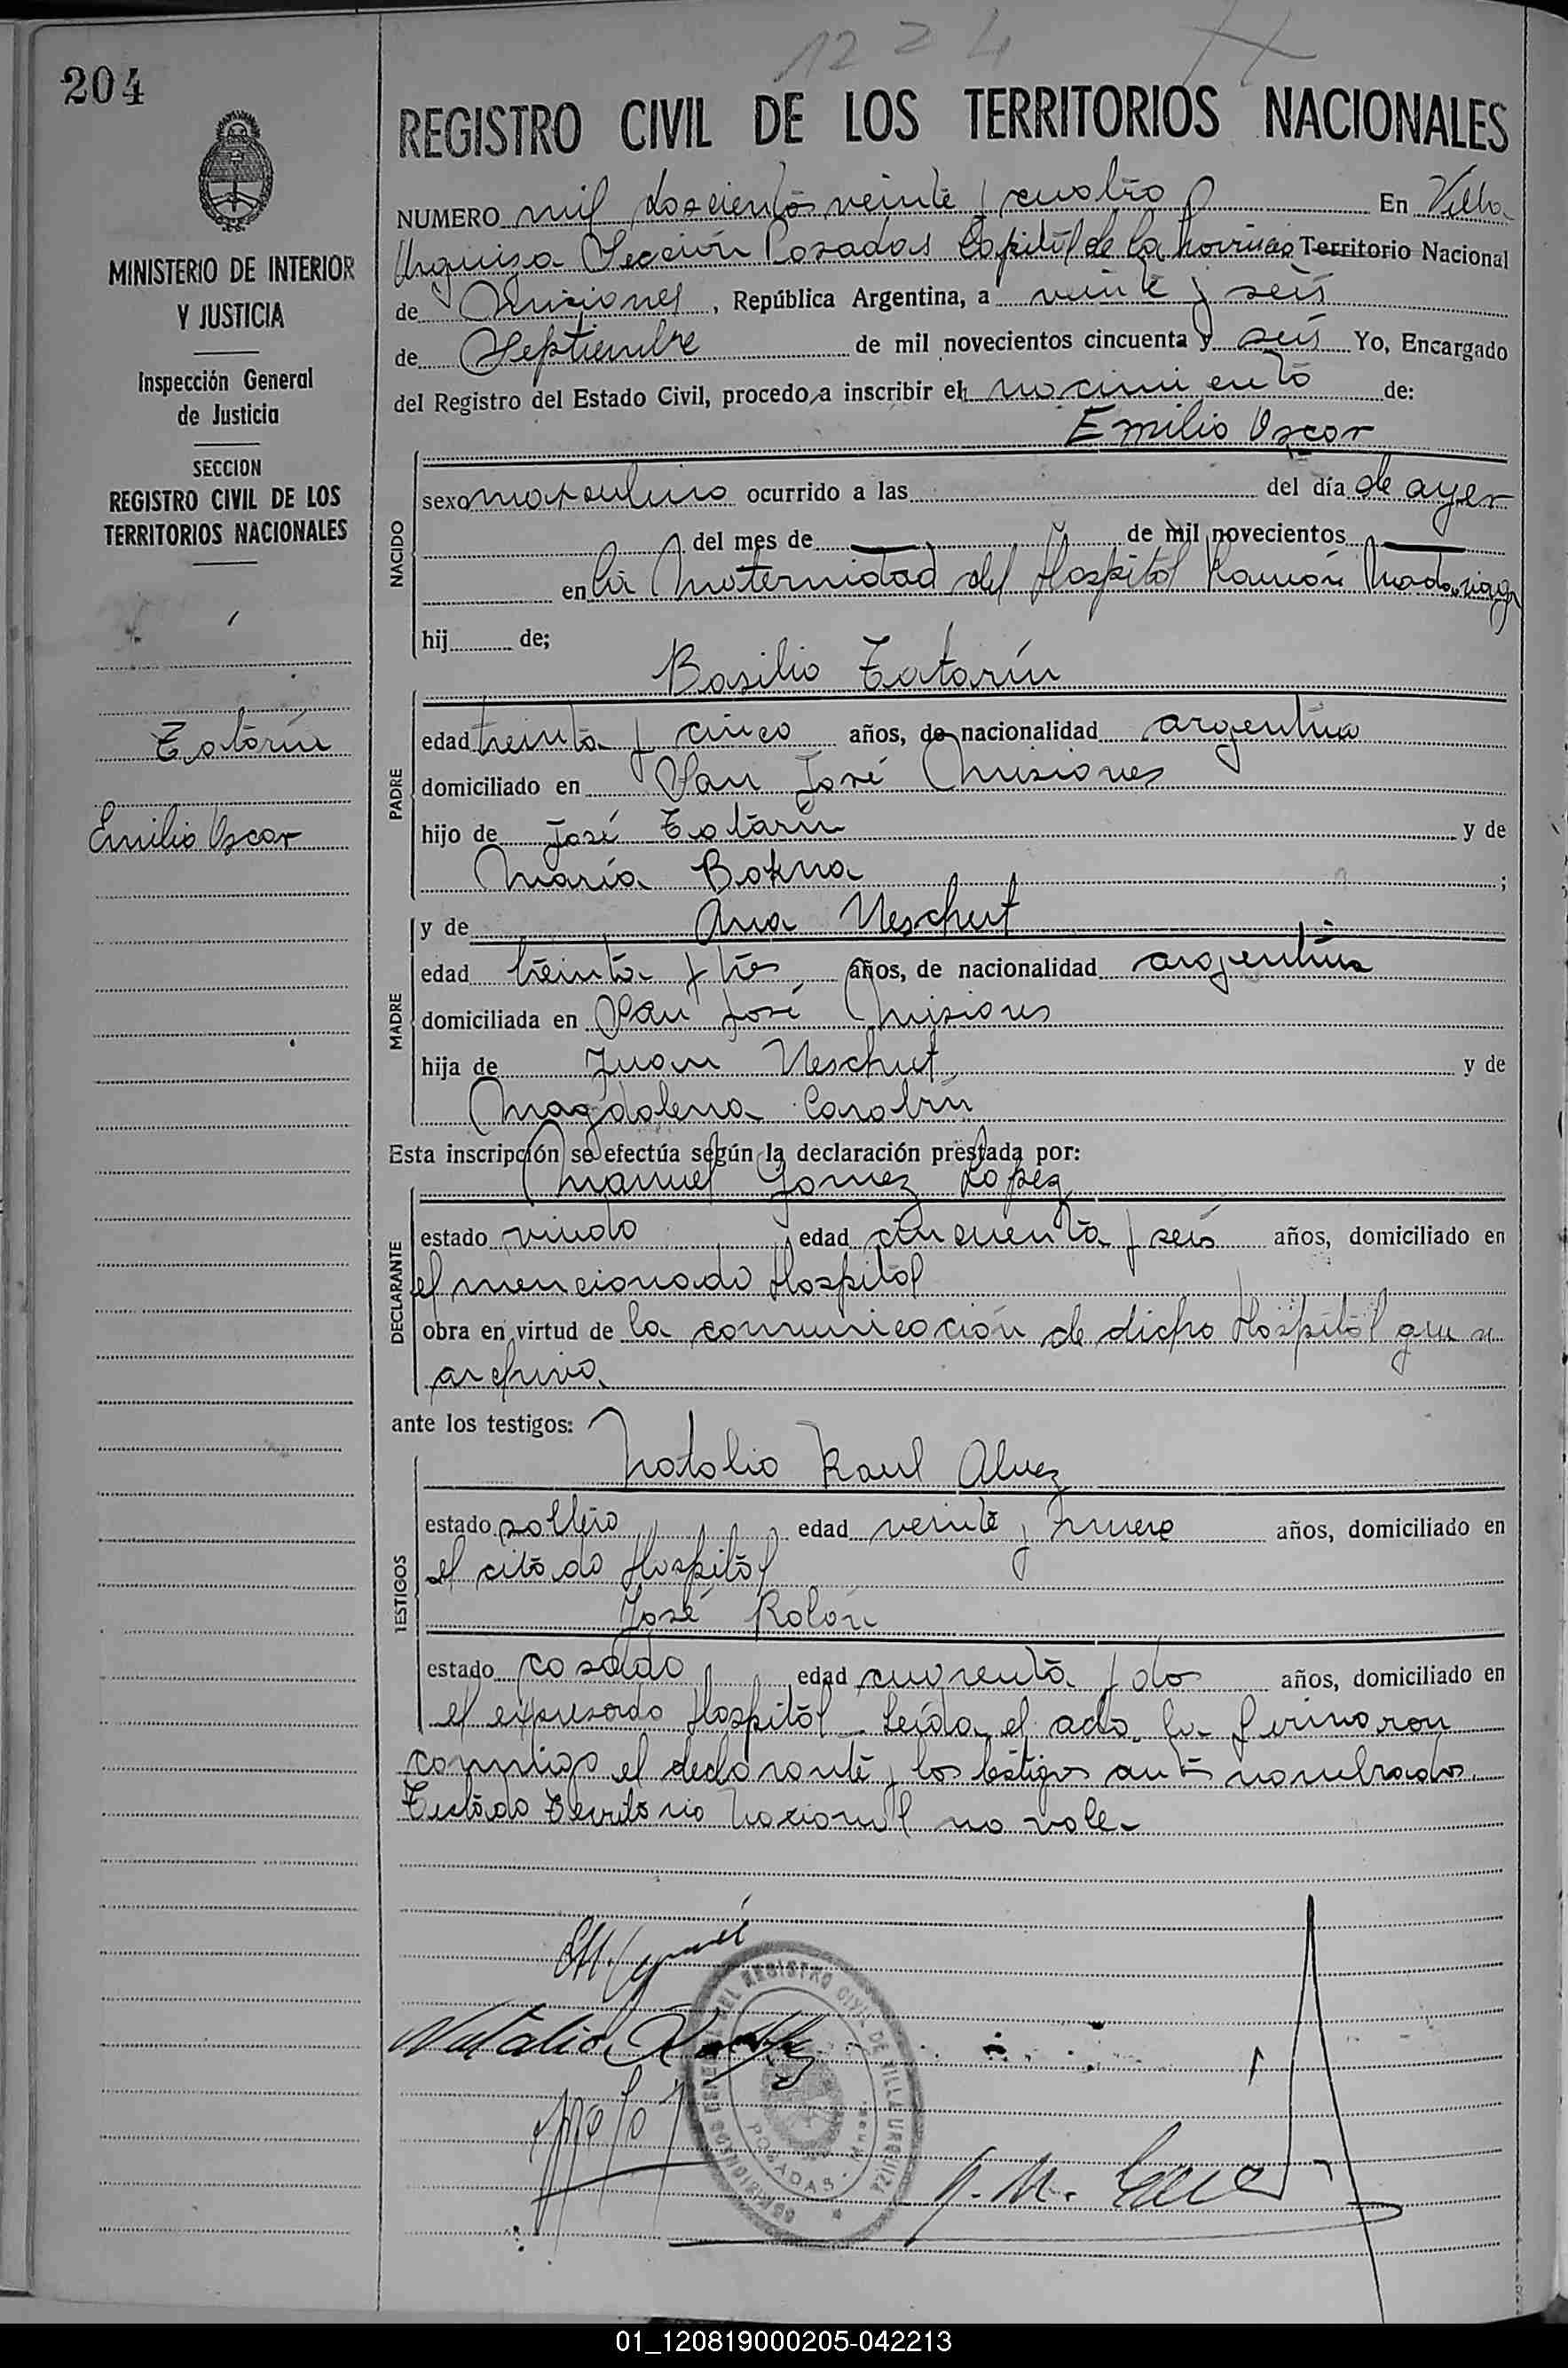 1224
204
REGISTRO CIVIL DE LOS TERRITORIOS NACIONALES
MINISTERIO DE INTERIOR
Y JUSTICIA
Inspección General
de Justicia
SECCION
REGISTRO CIVIL DE LOS
TERRITORIOS NACIONALES
Tatarín
Emilio Oscar
NUMERO mil doscientos veinte y cuatro En Villa
Urquiza Sección Posadas Capital de la Provincia Territorio Nacional
de Misiones, República Argentina, a veinte y seis
de Septiembre de mil novecientos cincuenta y seis Yo, Encargado
del Registro del Estado Civil, procedo a inscribir el nacimiento de:
Emilio Oscar
NACIDO
sexo masculino ocurrido a las del día de ayer
del mes de de mil novecientos
en la Maternidad del Hospital Ramón Madariaga
hij de;
Basilio Tatarín
PADRE
edad treinta y cinco años, de nacionalidad argentina
domiciliado en San José Misiones
hijo de José Tatarín y de
María Bokna ;
y de Ana Neschut
MADRE
edad treinta y tres años, de nacionalidad argentina
domiciliada en San José Misiones
hija de Juan Neschut y de
Magdalena
Esta inscripción se efectúa según la declaración prestada por:
Manuel Gomez Lopez
DECLARANTE
estado viudo edad cincuenta y seis años, domiciliado en
el mencionado Hospital
obra en virtud de la comunicación de dicho Hospital que se
archiva.
ante los testigos:
Natalio Raul Alvez
TESTIGOS
estado soltero edad veinte y nueve años, domiciliado en
el citado Hospital
José Rolón
estado casado edad cuarenta y dos años, domiciliado en
el expresado Hospital. Leída el acta la firmaron
conmigo el declarante y los testigos antes nombrados.
Testado Territorio Nacional no vale.
Natalio
REGISTRO CIVIL DE VILLA URQUIZA
POSADAS
01_120819000205-042213